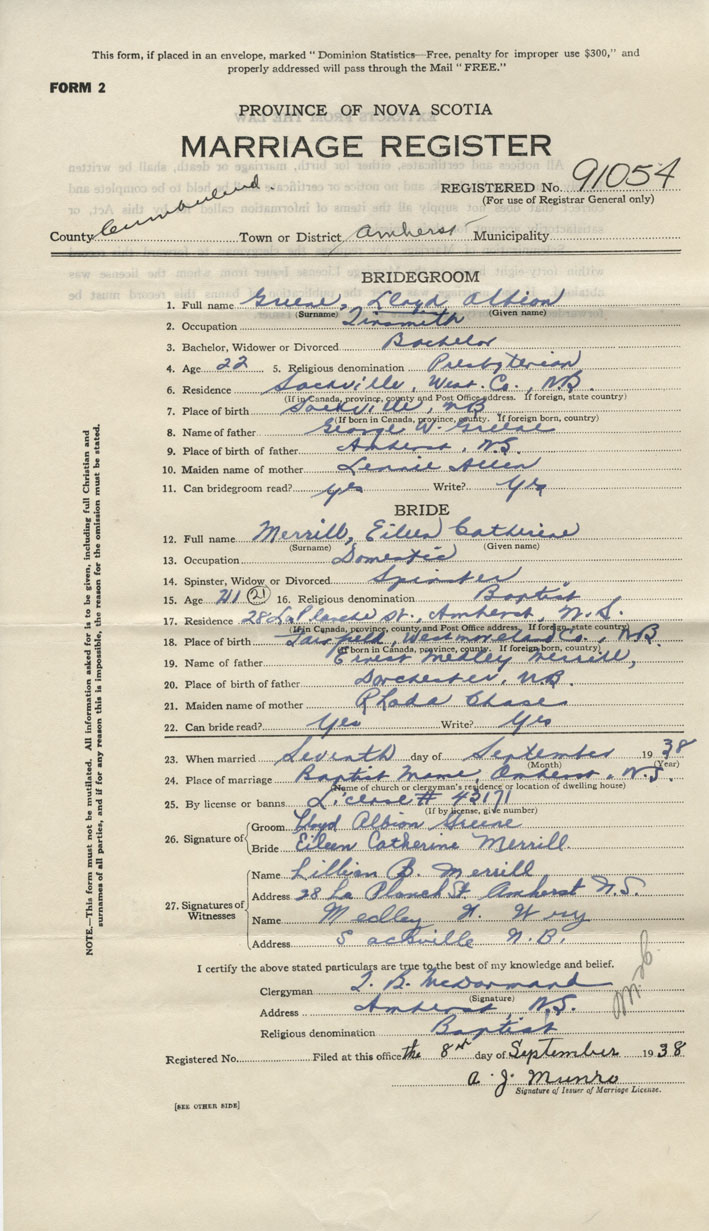 This form, if placed in an envelope, marked "Dominion Statistics—Free, penalty for improper use $300," and
properly addressed will pass through the Mail "FREE."
FORM 2
PROVINCE OF NOVA SCOTIA
MARRIAGE REGISTER
REGISTERED No. 91054
(For use of Registrar General only)
County Cumberland. Town or District Amherst Municipality
BRIDEGROOM
1. Full name Greene, Lloyd Albion
(Surname) (Given name)
2. Occupation Tinsmith
3. Bachelor, Widower or Divorced Bachelor
4. Age 22 5. Religious denomination Presbyterian
6. Residence Sackville, West. Co., N.B.
(If in Canada, province, county and Post Office address. If foreign, state country)
7. Place of birth Sackville, N.B.
(If born in Canada, province, county. If foreign born, country)
8. Name of father George W. Greene
9. Place of birth of father Amherst, N.S.
10. Maiden name of mother Lennie Allen
11. Can bridegroom read? yes Write? yes
BRIDE
12. Full name Merrill, Eileen Catherine
(Surname) (Given name)
13. Occupation Domestic
14. Spinster, Widow or Divorced Spinster
15. Age 21 (21) 16. Religious denomination Baptist
17. Residence 28 La Planche St., Amherst, N.S.
(If in Canada, province, county, and Post Office address, If foreign, state country)
18. Place of birth Westmoreland Co., N.B.
(If born in Canada, province, county. If foreign born, country)
19. Name of father Ernest Medley Merrill,
20. Place of birth of father Dorchester, N.B.
21. Maiden name of mother Rhoda Chase
22. Can bride read? Yes Write? Yes
23. When married Seventh day of September 1938
(Month) (Year)
24. Place of marriage Baptist Manse, Amherst, N.S.
(Name of church or clergyman's residence or location of dwelling house)
25. By license or banns License # 43171
(If by license, give number)
26. Signature of
Groom Lloyd Albion Greene
Bride Eileen Catherine Merrill
27. Signatures of Witnesses
Name Lillian B. Merrill
Address 28 La Planch St Amherst N.S.
Name Medley W. Wry
Address Sackville N.B.
I certify the above stated particulars are true to the best of my knowledge and belief.
Clergyman B. McDormand
(Signature)
Address Amherst, N.S.
Religious denomination Baptist
Registered No. Filed at this office the 8th day of September 1938
A. J. Munro
Signature of Issuer of Marriage License.
[SEE OTHER SIDE]
NOTE.—This form must not be mutilated. All information asked for is to be given, including full Christian and
surnames of all parties, and if for any reason this is impossible, the reason for the omission must be stated.